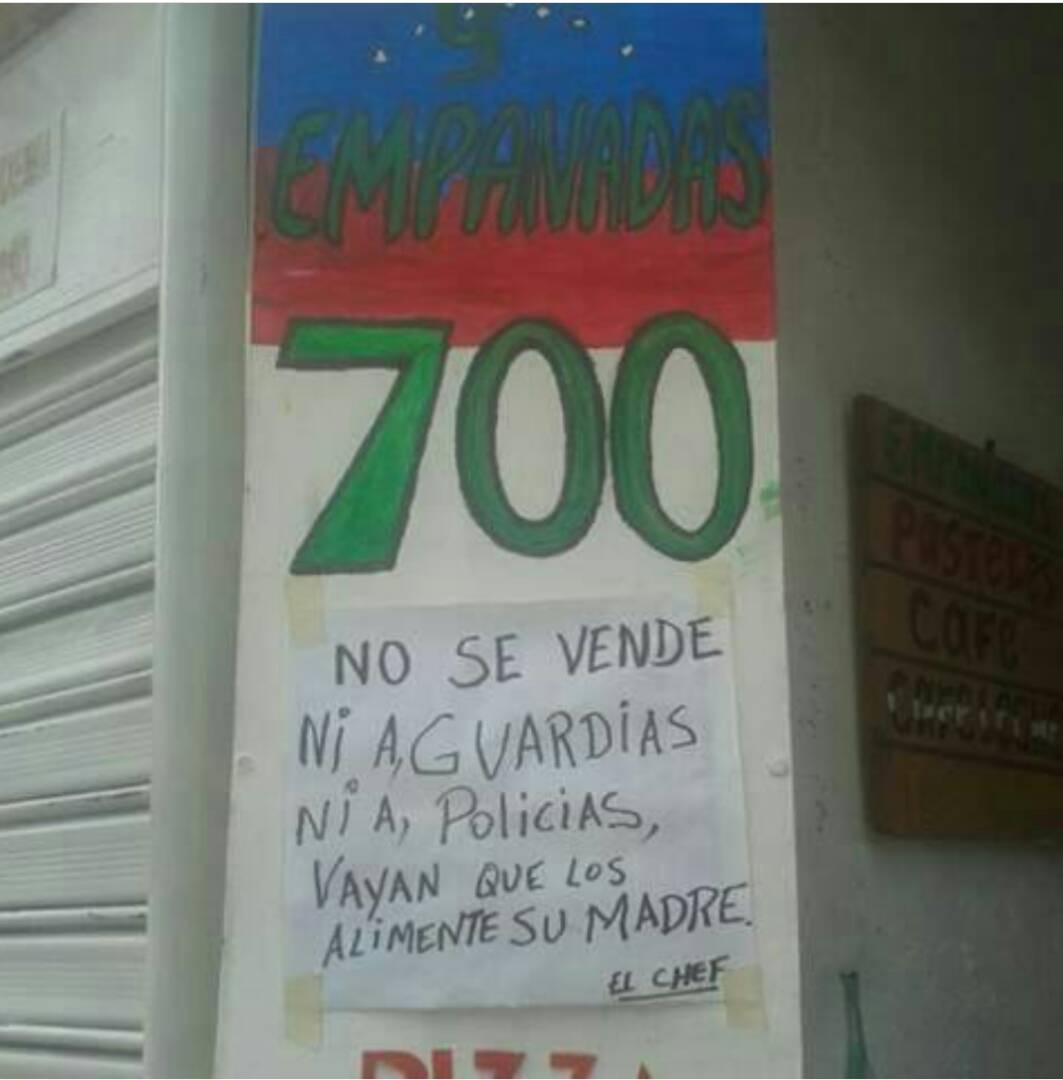 y
EMPANADAS
700
NO SE VENDE
Ni A, GUARDiAS
Ni A, POLiCiAS,
VAYAN QUE LOS
ALiMENTE SU MADRE.
EL CHEF
PIZZA
PASTELES
CAFE